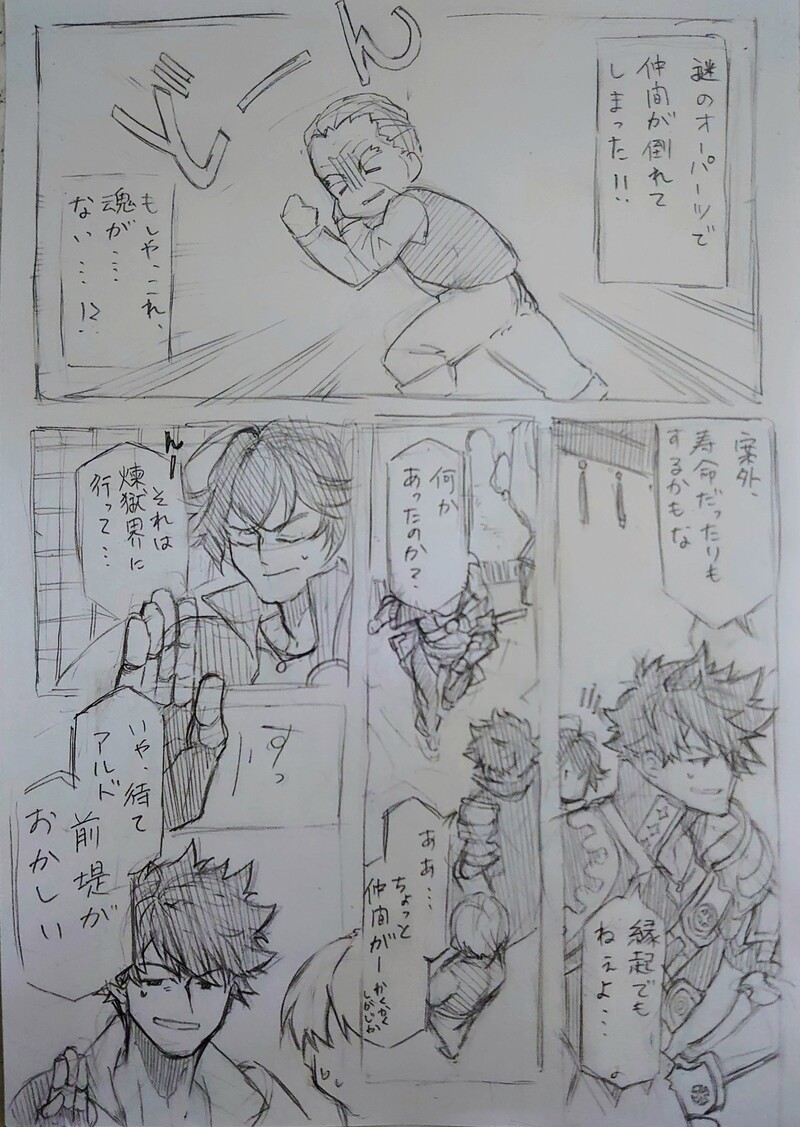 謎のオーパーツで
仲間が倒れて
しまった!!
どーん
もしや、これ、
魂が…
ない……!?
案外、
寿命だったりも
するかもな
縁起でも
ねえよ…
何か
あったのか?
ああ…
ちょっと
仲間がー
かくかく
しかじか
んー
それは
煉獄界に
行って…
すっ
いや、待て
アルド
前堤が
おかしい